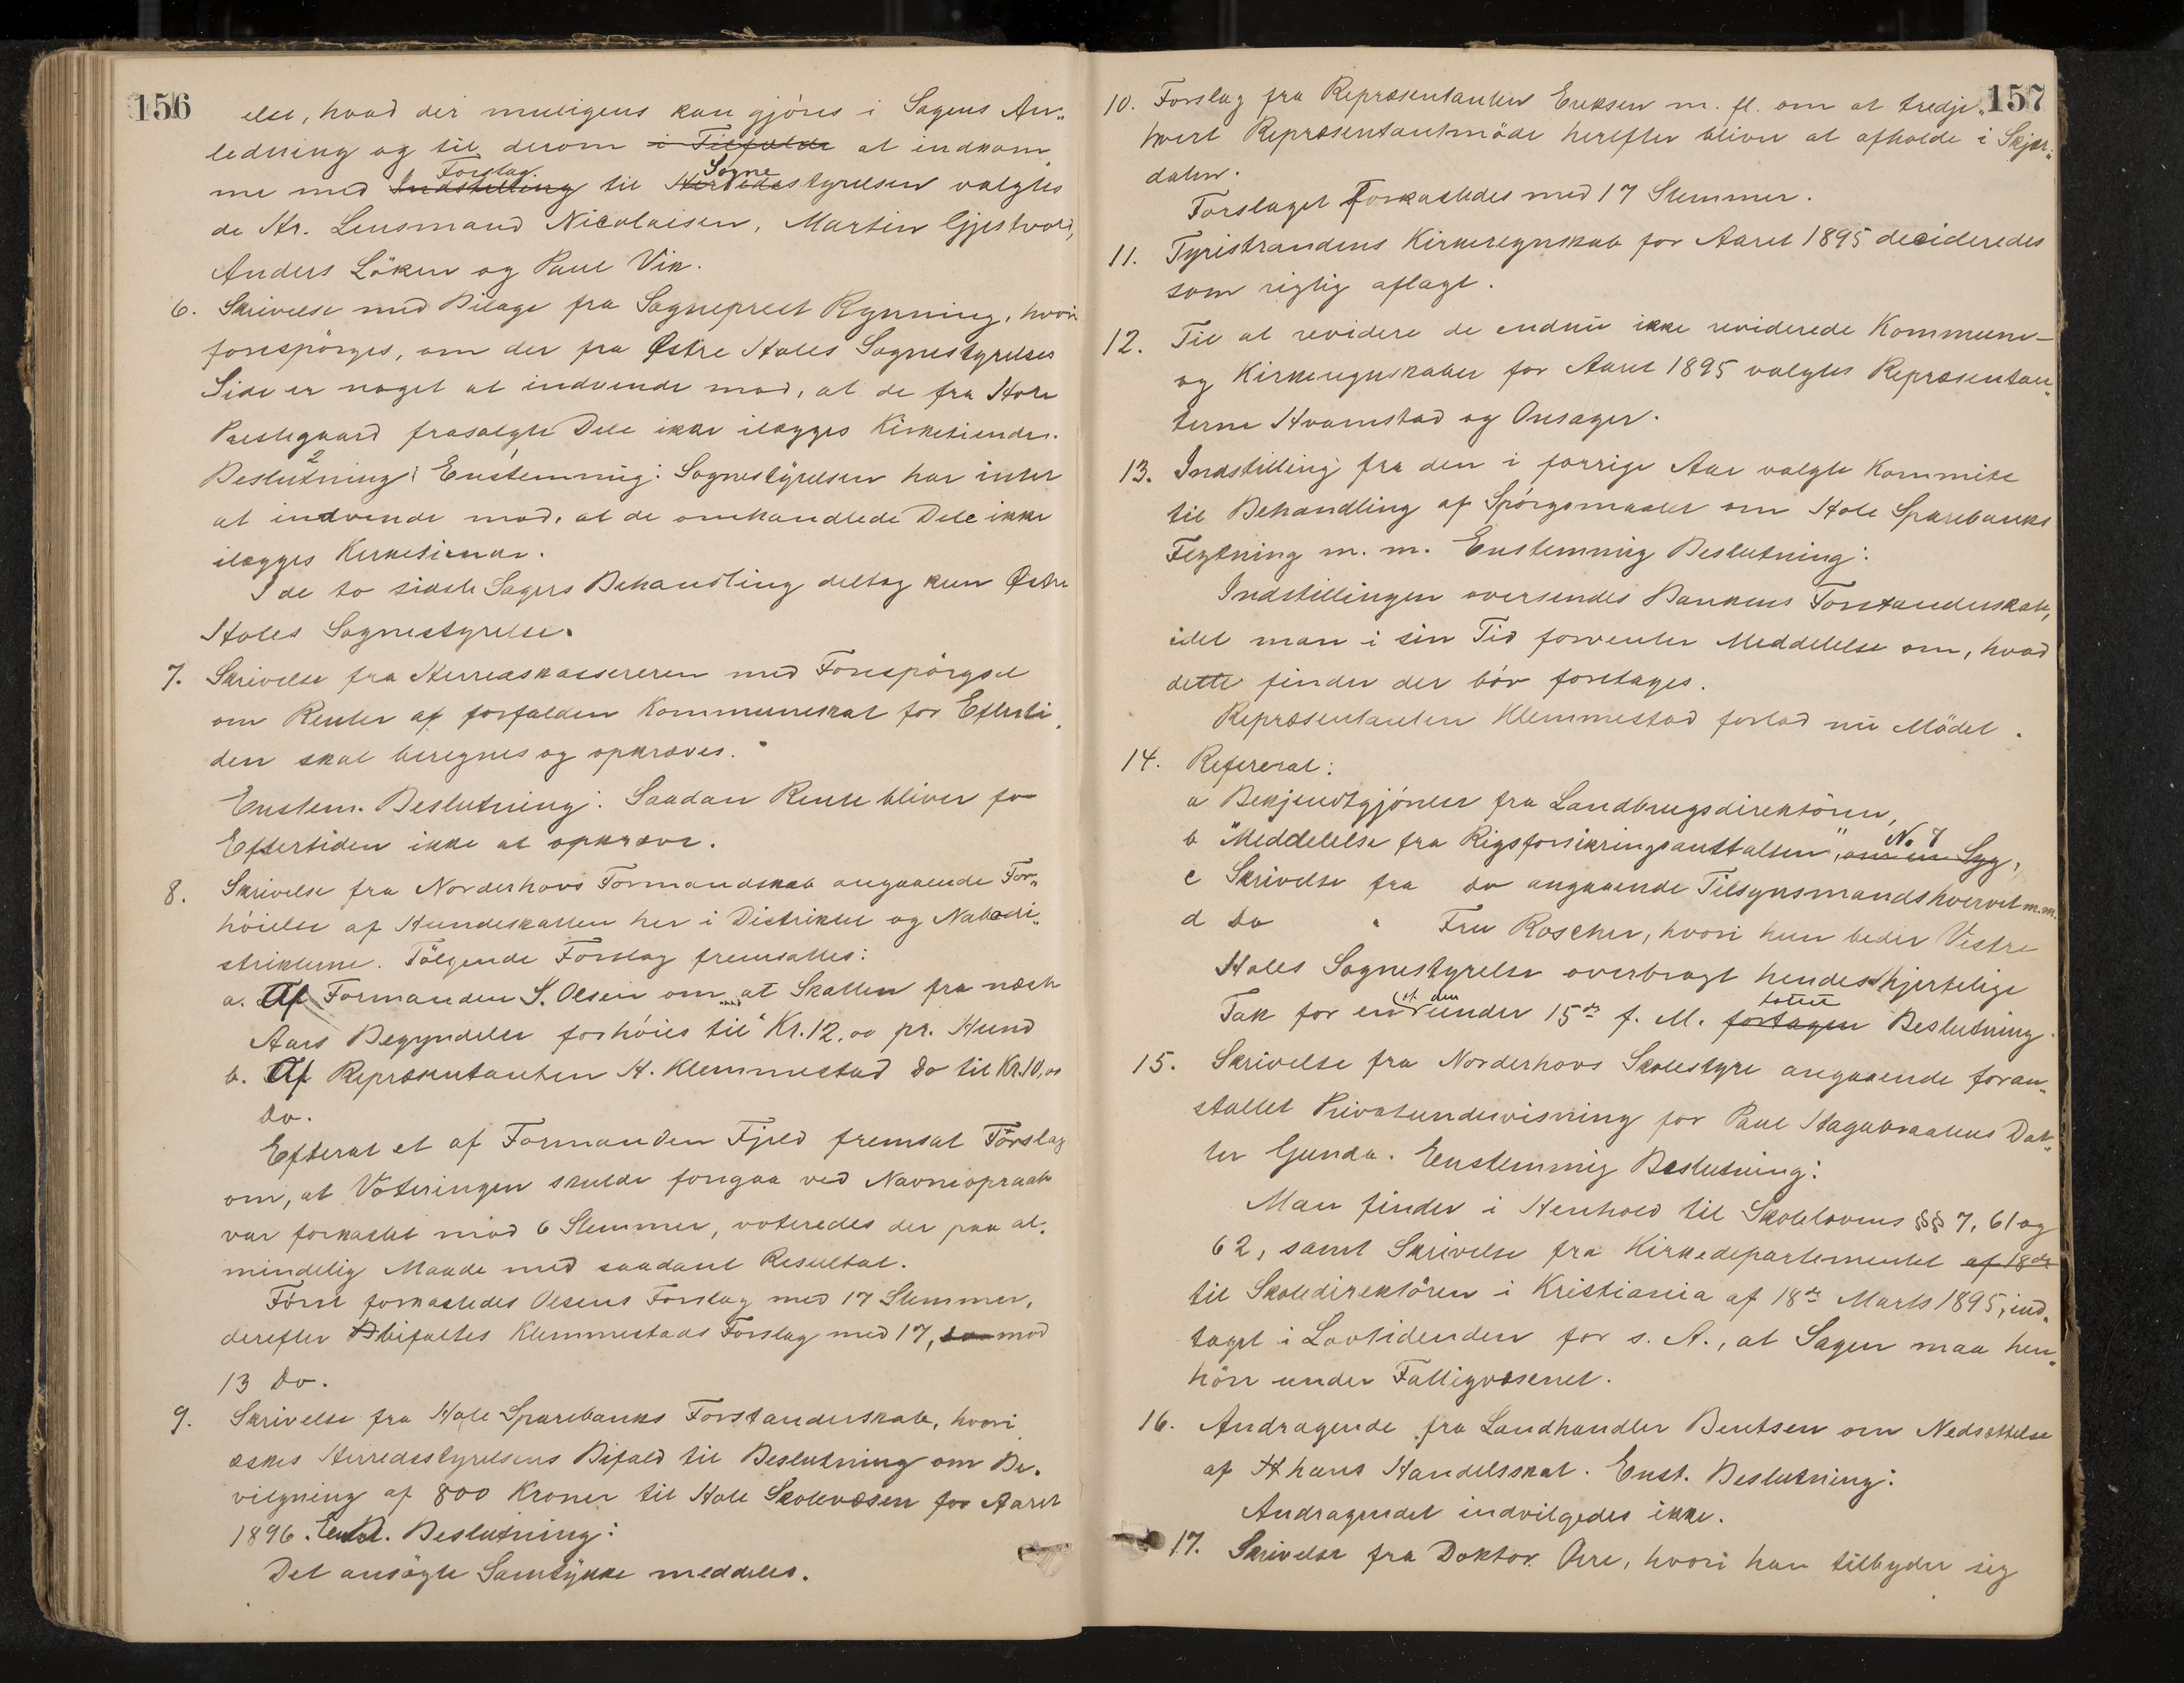 156
else, hvad der muligens kan gjöres i Sagens An„
ledning og til derom i Tilfælde at indkom„
me med Indstilling Forslag til Herreds Sognestyrelsen valgtes
de Hr. Lensmand Nicolaisen, Martin Gjestvold,
Anders Löken og Paul Vik.
6. Skrivelse med Bilage fra Sogneprest Rynning, hvori
forespörges, om der fra Østre Holes Sognestyrelses
Side er noget at indvende mod, at de fra Hole
Prestegaard frasolgte Dele ikke ilægges Kirketiender.
Beslutning: Enstemmig: Sognestyrelsen har intet
at indvende mod, at de omhandlede Dele ikke
ilægges Kirketiender.
I de to sidste Sagers Behandling deltog kun Østre
Holes Sognestyrelse.
7. Skrivelse fra Herredskassereren med Forespörgsel
om Renter af forfalden Kommuneskat for Efterti„
den skal beregnes og opkræves.
Enstem. Beslutning: Saadan Rente bliver for
Eftertiden ikke at opkræve.
8. Skrivelse fra Norderhovs Formandskab angaaende For„
höielse af Hundeskatten her i Distriktet og Nabodi„
strikterne. Fölgende Forslag fremsattes:
a. Af Formanden S. Olsen om at Skatten fra næste
Aars Begyndelse forhöies til Kr. 12,00 pr. Hund
b. Af Repræsentanten H. Klemmestad Do til Kr. 10,00
do.
Efterat et af Formanden Fjeld fremsat Forslag
om, at Voteringen skulde foregaa ved Navneopraab
var forkastet mod 6 Stemmer, voteredes der paa al„
mindelig Maade med saadant Resultat.
Först forkastedes Olsens Forslag med 17 Stemmer,
derefter bifaltes Klemmestads Forslag med 17, mod
13 do.
9. Skrivelse fra Hole Sparebanks Forstanderskab, hvori
æskes Herredsstyrelsens Bifald til Beslutning om Be„
vilgning af 800 Kroner til Hole Skolevæsen for Aaret
1896. Enst. Beslutning:
Det ansögte Samtykke meddeles.
157
10. Forslag fra Repræsentanten Eriksen m. fl. om at tredje„
hvert Repræsentantmöde herefter bliver at afholde i Skjær„
dalen.
Forslaget forkastedes med 17 Stemmer.
11. Tyristrandens Kirkeregnskab for Aaret 1895 decideredes
som rigtig aflagt.
12. Til at revidere de endnu ikke reviderede Kommune-
og Kirkeregnskaber for Aaret 1895 valgtes Repræsentan„
terne Hvamstad og Onsager.
13. Indstilling fra den i forrige Aar valgte Kommite
til Behandling af Spörgsmaalet om Hole Sparebanks
Flytning m. m. Enstemmig Beslutning:
Indstillingen oversendes Bankens Forstanderskab,
idet man i sin Tid forventer Meddelelse om, hvad
dette finder der bör foretages.
Repræsentanten Klemmestad forlod nu Mödet.
14. Refererat:
a Bekjendtgjörelse fra Landbrugsdirektören,
b "Meddelelse fra Rigsforsikringsanstalten", om en Syg, No 7
c Skrivelse fra do angaaende Tilsynsmandshvervet m.m.
d Do " Fru Roscher, hvori hun beder Vestre
Holes Sognestyrelse overbragt hendes hjertelige
Tak for en af den under 15de f. M. fortagen fattet Beslutning.
15. Skrivelse fra Norderhovs Skolestyre angaaende foran„
staltet Privatundervisning for Paul Hagabraatens Dat„
ter Gunda. Enstemmig Beslutning:
Man finder i Henhold til Skolelovens §§ 7, 61 og
62, samt Skrivelse fra Kirkedepartementet af 18de
til Skoledirektören i Kristiania af 18de Marts 1895, ind„
taget i Lovtidenden for s. A., at Sagen maa hen„
höre under Fattigvæsenet.
16. Andragende fra Landhandler Bentsen om Nedsættelse
af hans Handelsskat. Enst. Beslutning:
Andragendet indvilgedes ikke.
17. Skrivelse fra Doktor, hvori han tilbyder sig